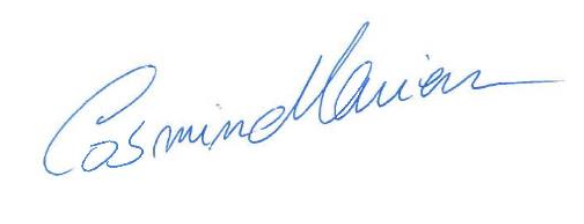 Cosmin Marian